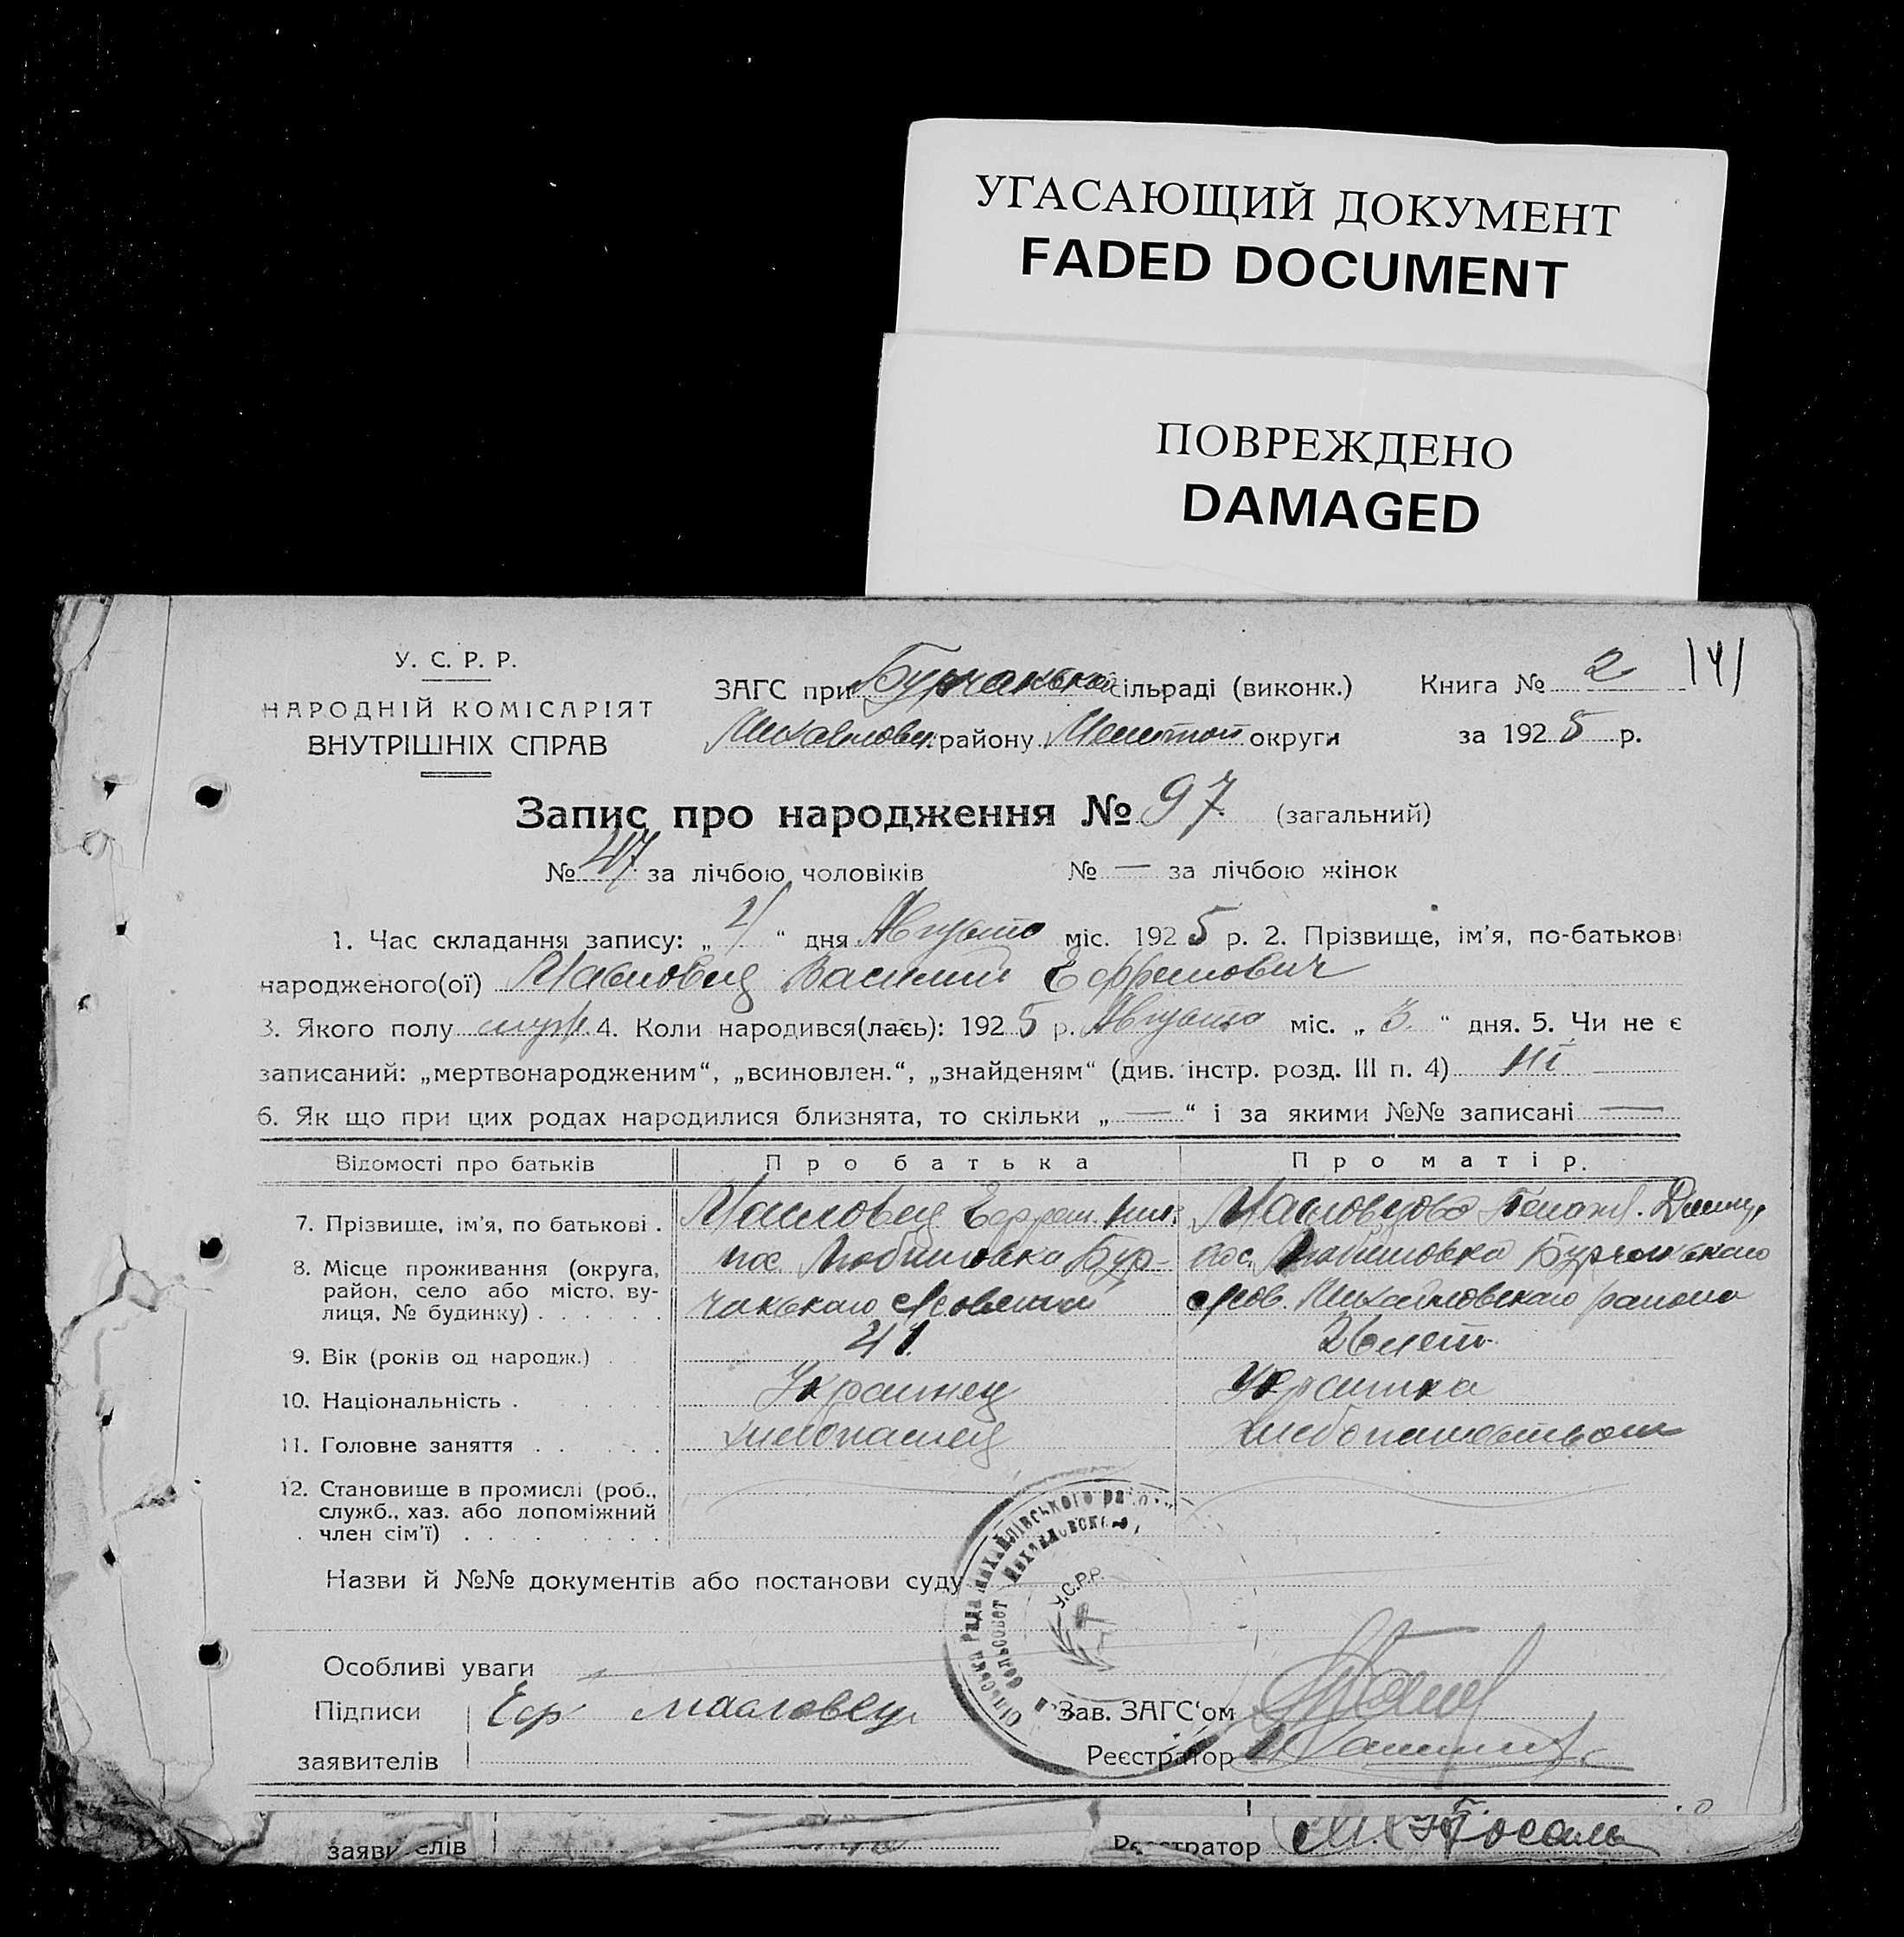 УГАСАЮЩИЙ ДОКУМЕНТ
FADED DOCUMENT
ПОВРЕЖДЕНО
DAMAGED
У. С. Р. Р.
НАРОДНІЙ КОМІСАРІЯТ
ВНУТРІШНІХ СПРАВ
ЗАГС при Бурчакской сільраді (виконк.) Книга № 2 141
Михайловск. району Мелитоп округи за 1925 р.
Запис про народження № 97 (загальний)
№ 47 за лічбою чоловіків № — за лічбою жінок
1. Час складання запису: „ “ дня Августа міс. 1925 р. 2. Прізвище, ім’я, по-батькові
народженого(ої) Масловец Василий Ефремович
3. Якого полу муж. 4. Коли народився(лась): 1925 р. Августа міс. „ 3 “ дня. 5. Чи не є
записаний: „мертвонародженим“, „всиновлен.“, „знайденям“ (див. інстр. розд. III п. 4) ні —
6. Як що при цих родах народилися близнята, то скільки „ — “ і за якими №№ записані —
Відомості про батьків Про батька Про матір.
7. Прізвище, ім’я, по батькові . Масловец Ефрем. Масловцова
8. Місце проживання (округа, район, село або місто, вулиця, № будинку) . . . . . .
пос. Любимовка Бурчакскаго пос. Любимовка Бурчакскаго
Михайловскаго района
9. Вік (років од народж.) 41. 26 лет
10. Національність . Украинец Украинка
11. Головне заняття . . . . . хлебопашец хлебопашеством
12. Становище в промислі (роб.,
служб., хаз. або допоміжний
член сім’ї) . . . . . . .
Назви й №№ документів або постанови суду
Сільська Рада Михайлівського
Сельсовет Михайловск
У.С.Р.Р.
Особливі уваги
Підписи Еф Масловец Зав. ЗАГС‘ом
заявителів Реєстратор
заявителів Реєстратор